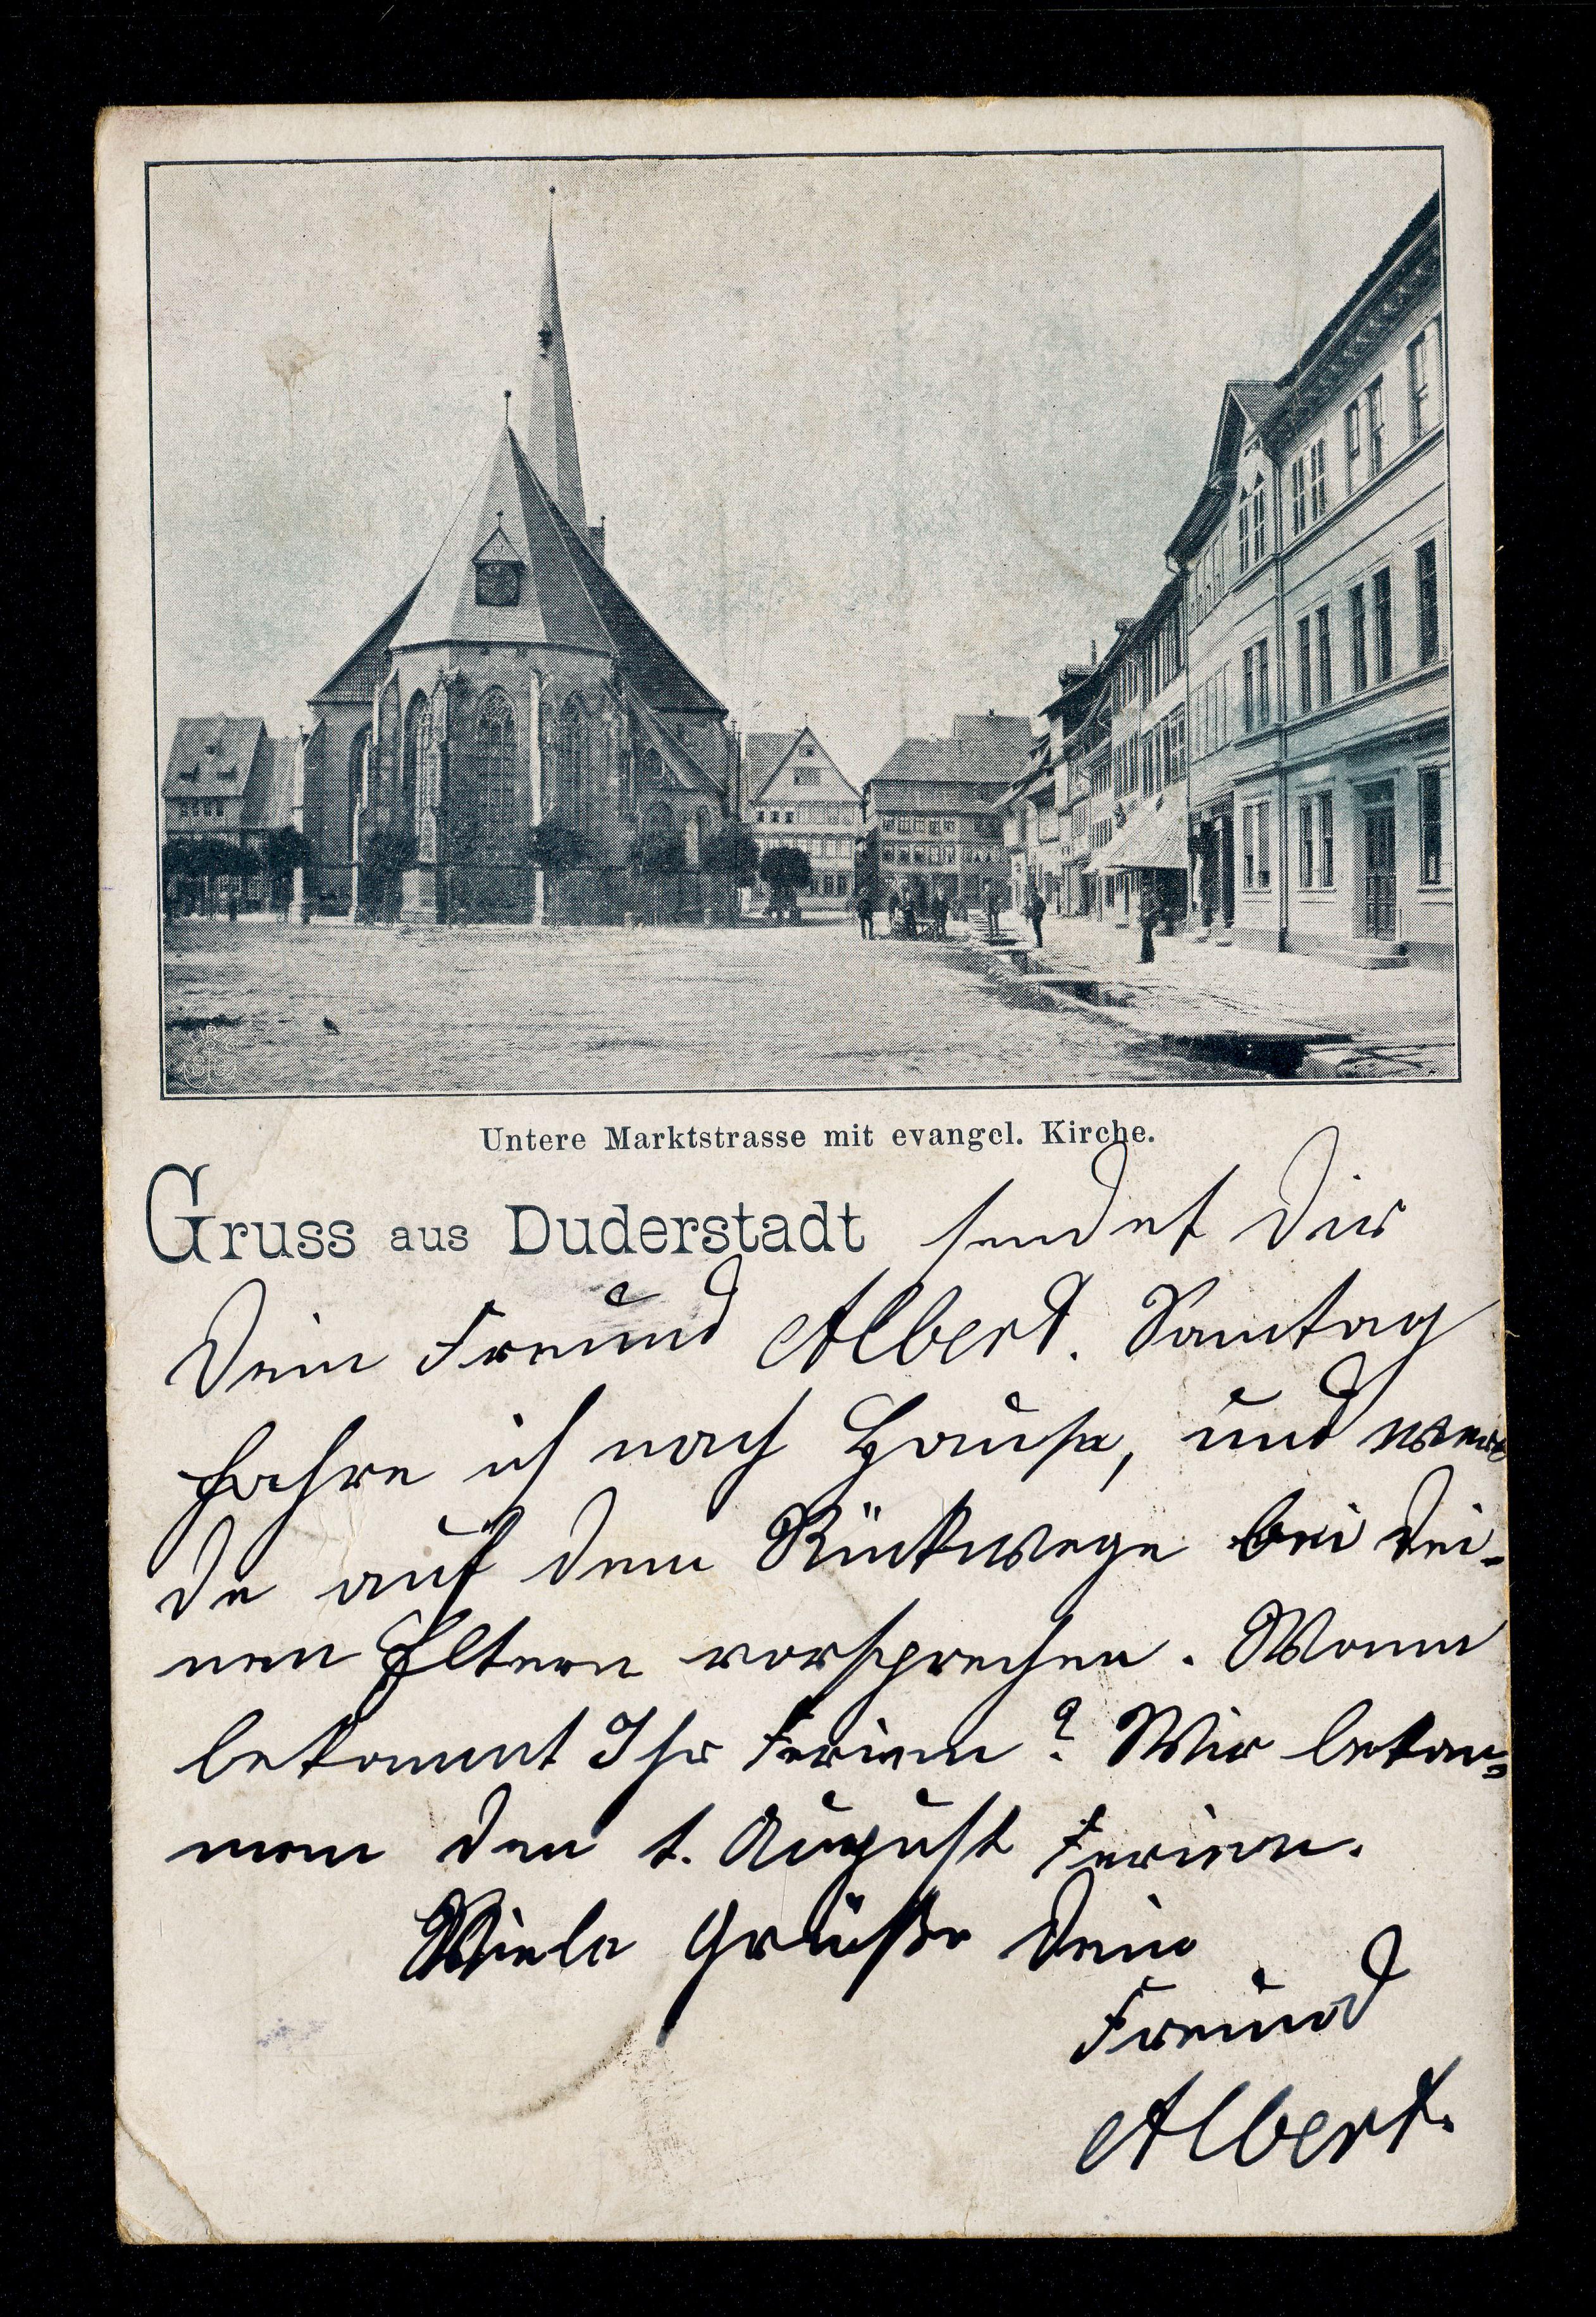 Untere Marktstrasse mit evangel. Kirche.
Gruss aus Duderstadt sendet Dir
Dein Freund Albert. Sonntag
fahre ich nach Hause, und wer
de auf dem Rückwege bei Dei-
nen Eltern vorsprechen. Wann
bekommt Ihr Ferien? Wir bekom=
men den 1. August Ferien.
Viele Grüße Dein
Freund
Albert.